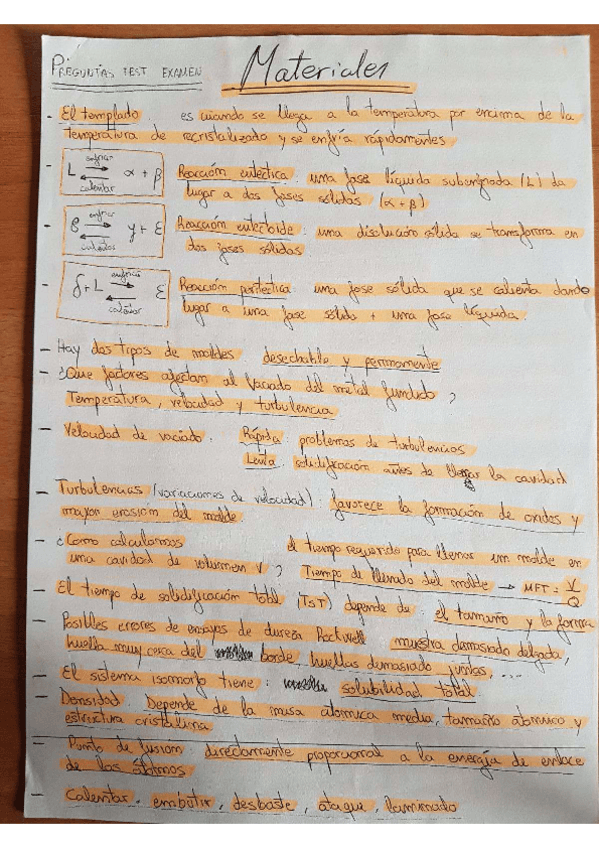 PREGUNTAS TEST EXAMEN Materiales
- El templado: es cuando se llega a la temperatura por encima de la
temperatura de recristalizado y se enfría rápidamente
- L enfriar calentar α + β Reacción eutéctica: una fase líquida subenfriada (L) da
lugar a dos fases sólidas (α + β)
- enfriar γ + ε Reacción eutectoide: una disolución sólida se transforma en
dos fases sólidas
- δ + L enfriar calentar ε Reacción peritéctica: una fase sólida que se calienta dando
lugar a una fase sólida + una fase líquida.
- Hay dos tipos de moldes: desechable y permanente
- ¿Que factores afectan al vaciado del metal fundido?
Temperatura, velocidad y turbulencia
- Velocidad de vaciado. Rápida: problemas de turbulencias
Lenta: solidificación antes de llenar la cavidad
- Turbulencias (variaciones de velocidad): favorece la formación de oxidos y
mayor erosión del molde.
- ¿Como calculamos el tiempo requerido para llenar un molde en
una cavidad de volumen V? Tiempo de llenado del molde → MFT = V/Q
- El tiempo de solidificación total (TST) depende de: el tamaño y la forma
- Posibles errores de ensayos de dureza Rockwell: muestra demasiado delgada,
huella muy cerca del borde, huellas demasiado juntas, ...
- El sistema isomorfo tiene: solubilidad total
- Densidad: Depende de la masa atómica media, tamaño atómico y
estructura cristalina
- Punto de fusión: directamente proporcional a la energía de enlace
de los átomos
- Calentar, embutir, desbaste, ataque, laminado